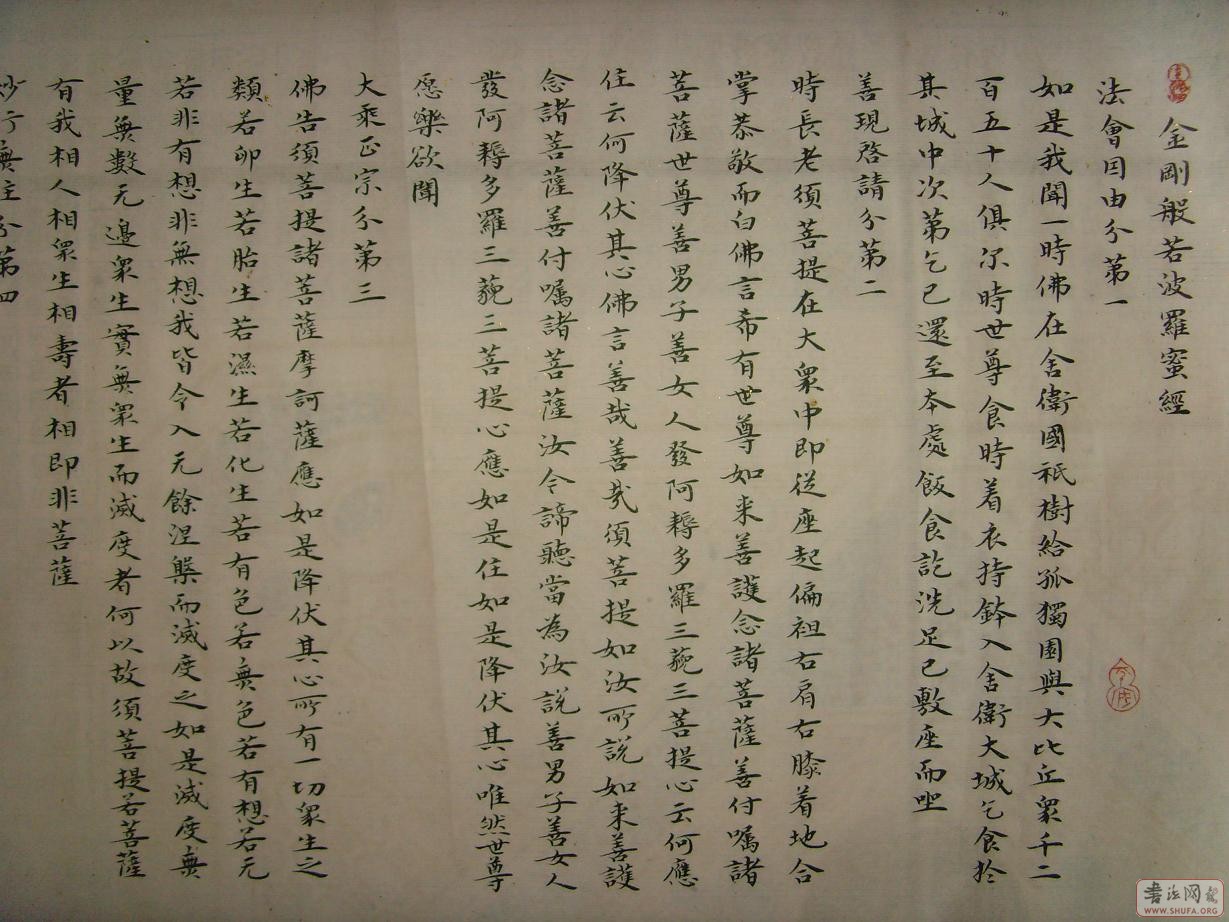 金剛般若波羅蜜經
法會因由分第一
如是我聞一時佛在舍衛國祇樹給孤獨園與大比丘衆千二
百五十人俱尔時世尊食時着衣持鉢入舍衛大城乞食於
其城中次第乞已還至本處飯食訖洗足已敷座而坐
善現啓請分第二
時長老須菩提在大衆中即從座起偏袒右肩右膝着地合
掌恭敬而白佛言希有世尊如来善護念諸菩薩善付嘱諸
菩薩世尊善男子善女人發阿耨多羅三藐三菩提心云何應
住云何降伏其心佛言善哉善哉須菩提如汝所説如来善護
念諸菩薩善付嘱諸菩薩汝今諦聽當為汝説善男子善女人
發阿耨多羅三藐三菩提心應如是住如是降伏其心唯然世尊
愿樂欲聞
大乘正宗分第三
佛告須菩提諸菩薩摩訶薩應如是降伏其心所有一切衆生之
類若卵生若胎生若濕生若化生若有色若無色若有想若无
若非有想非無想我皆令入无餘涅槃而滅度之如是滅度無
量無數无邊衆生實無衆生而滅度者何以故須菩提若菩薩
有我相人相衆生相壽者相即非菩薩
妙行無住分第四
書法网
WWW.SHUFA.ORG